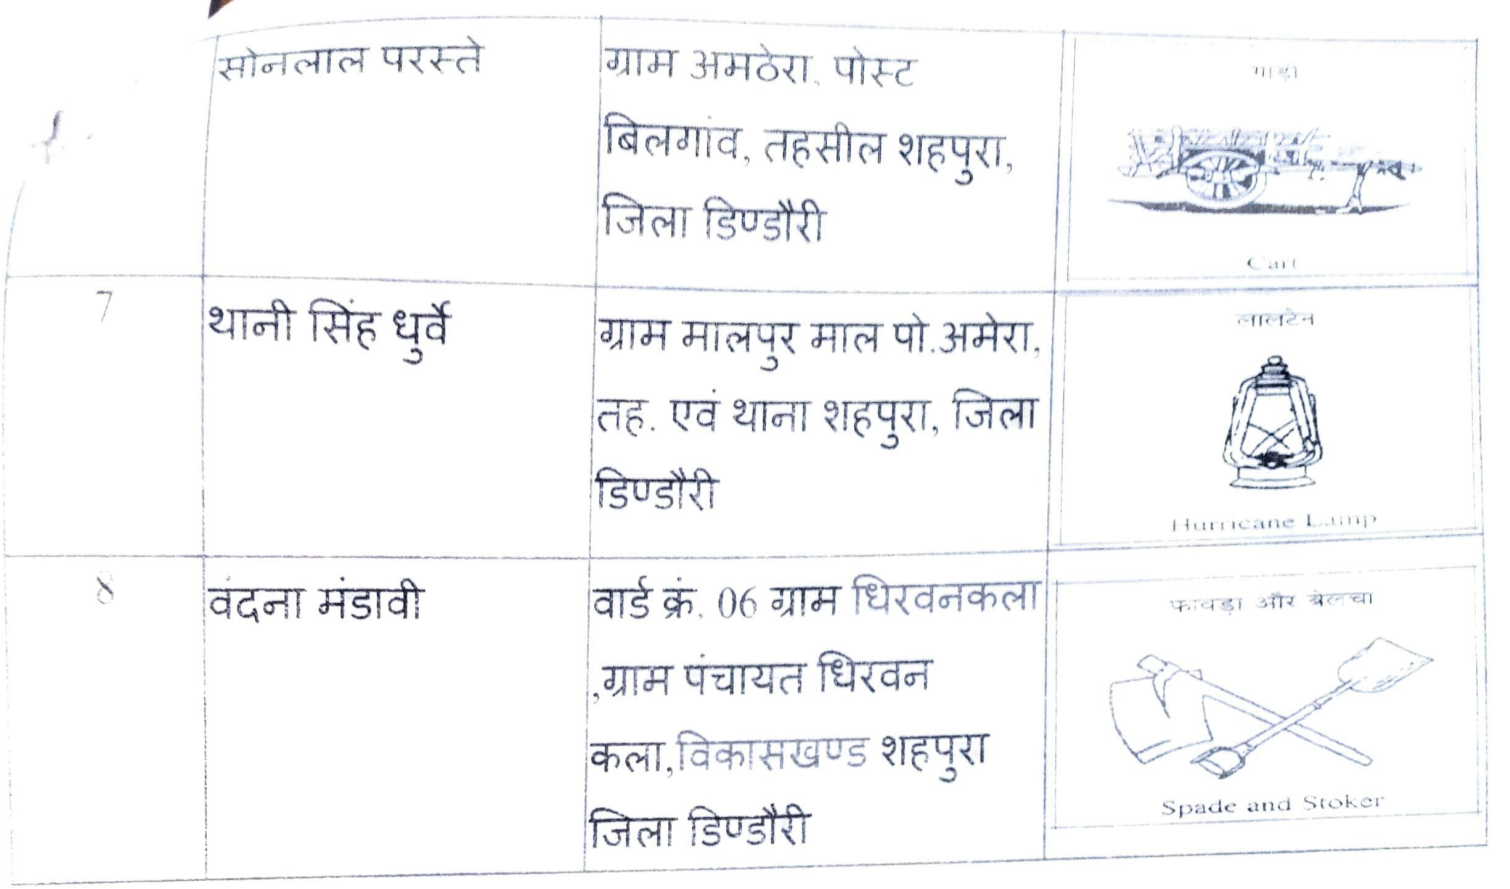 सोनलाल परस्ते
ग्राम अमठेरा, पोस्ट
बिलगांव, तहसील शहपुरा,
जिला डिण्डौरी
गाड़ी
Cart
7
थानी सिंह धुर्वे
ग्राम मालपुर माल पो.अमेरा,
तह. एवं थाना शहपुरा, जिला
डिण्डौरी
लालटेन
Hurricane Lamp
8
वंदना मंडावी
वार्ड क्रं. 06 ग्राम धिरवनकला
,ग्राम पंचायत धिरवन
कला,विकासखण्ड शहपुरा
जिला डिण्डौरी
फावड़ा और बेलचा
Spade and Stoker